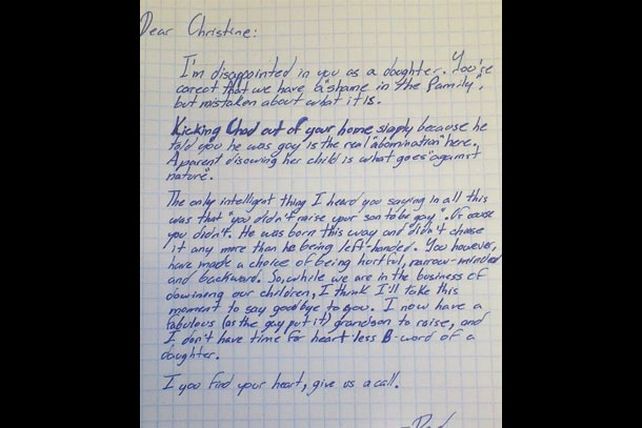 Dear Christine:
I'm disappointed in you as a daughter. You're
correct that we have a "shame in the family",
but mistaken about what it is.
Kicking Chad out of your home simply because he
told you he was gay is the real "abomination" here.
A parent disowing her child is what goes "against
nature".
The only intelligent thing I heard you saying in all this
was that "you didn't raise your son to be gay". Of couse
you didn't. He was born this way and didn't choose
it any more than he being left-handed. You however,
have made a choice of being hurtful, narrow-minded
and backward. So, while we are in the business of
downing our children, I think I'll take this
moment to say goodbye to you. I now have a
fabulous (as the gay put it) grandson to raise, and
I don't have time for heart-less B-word of a
daughter.
I you find your heart, give us a call.
-Dad